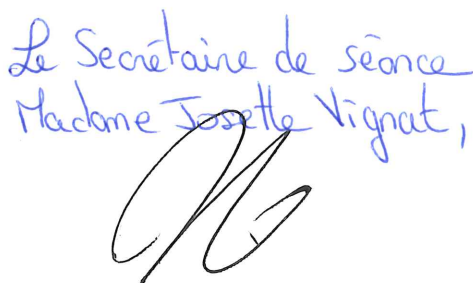 Le Secrétaire de séance
Madame Josette Vignat,